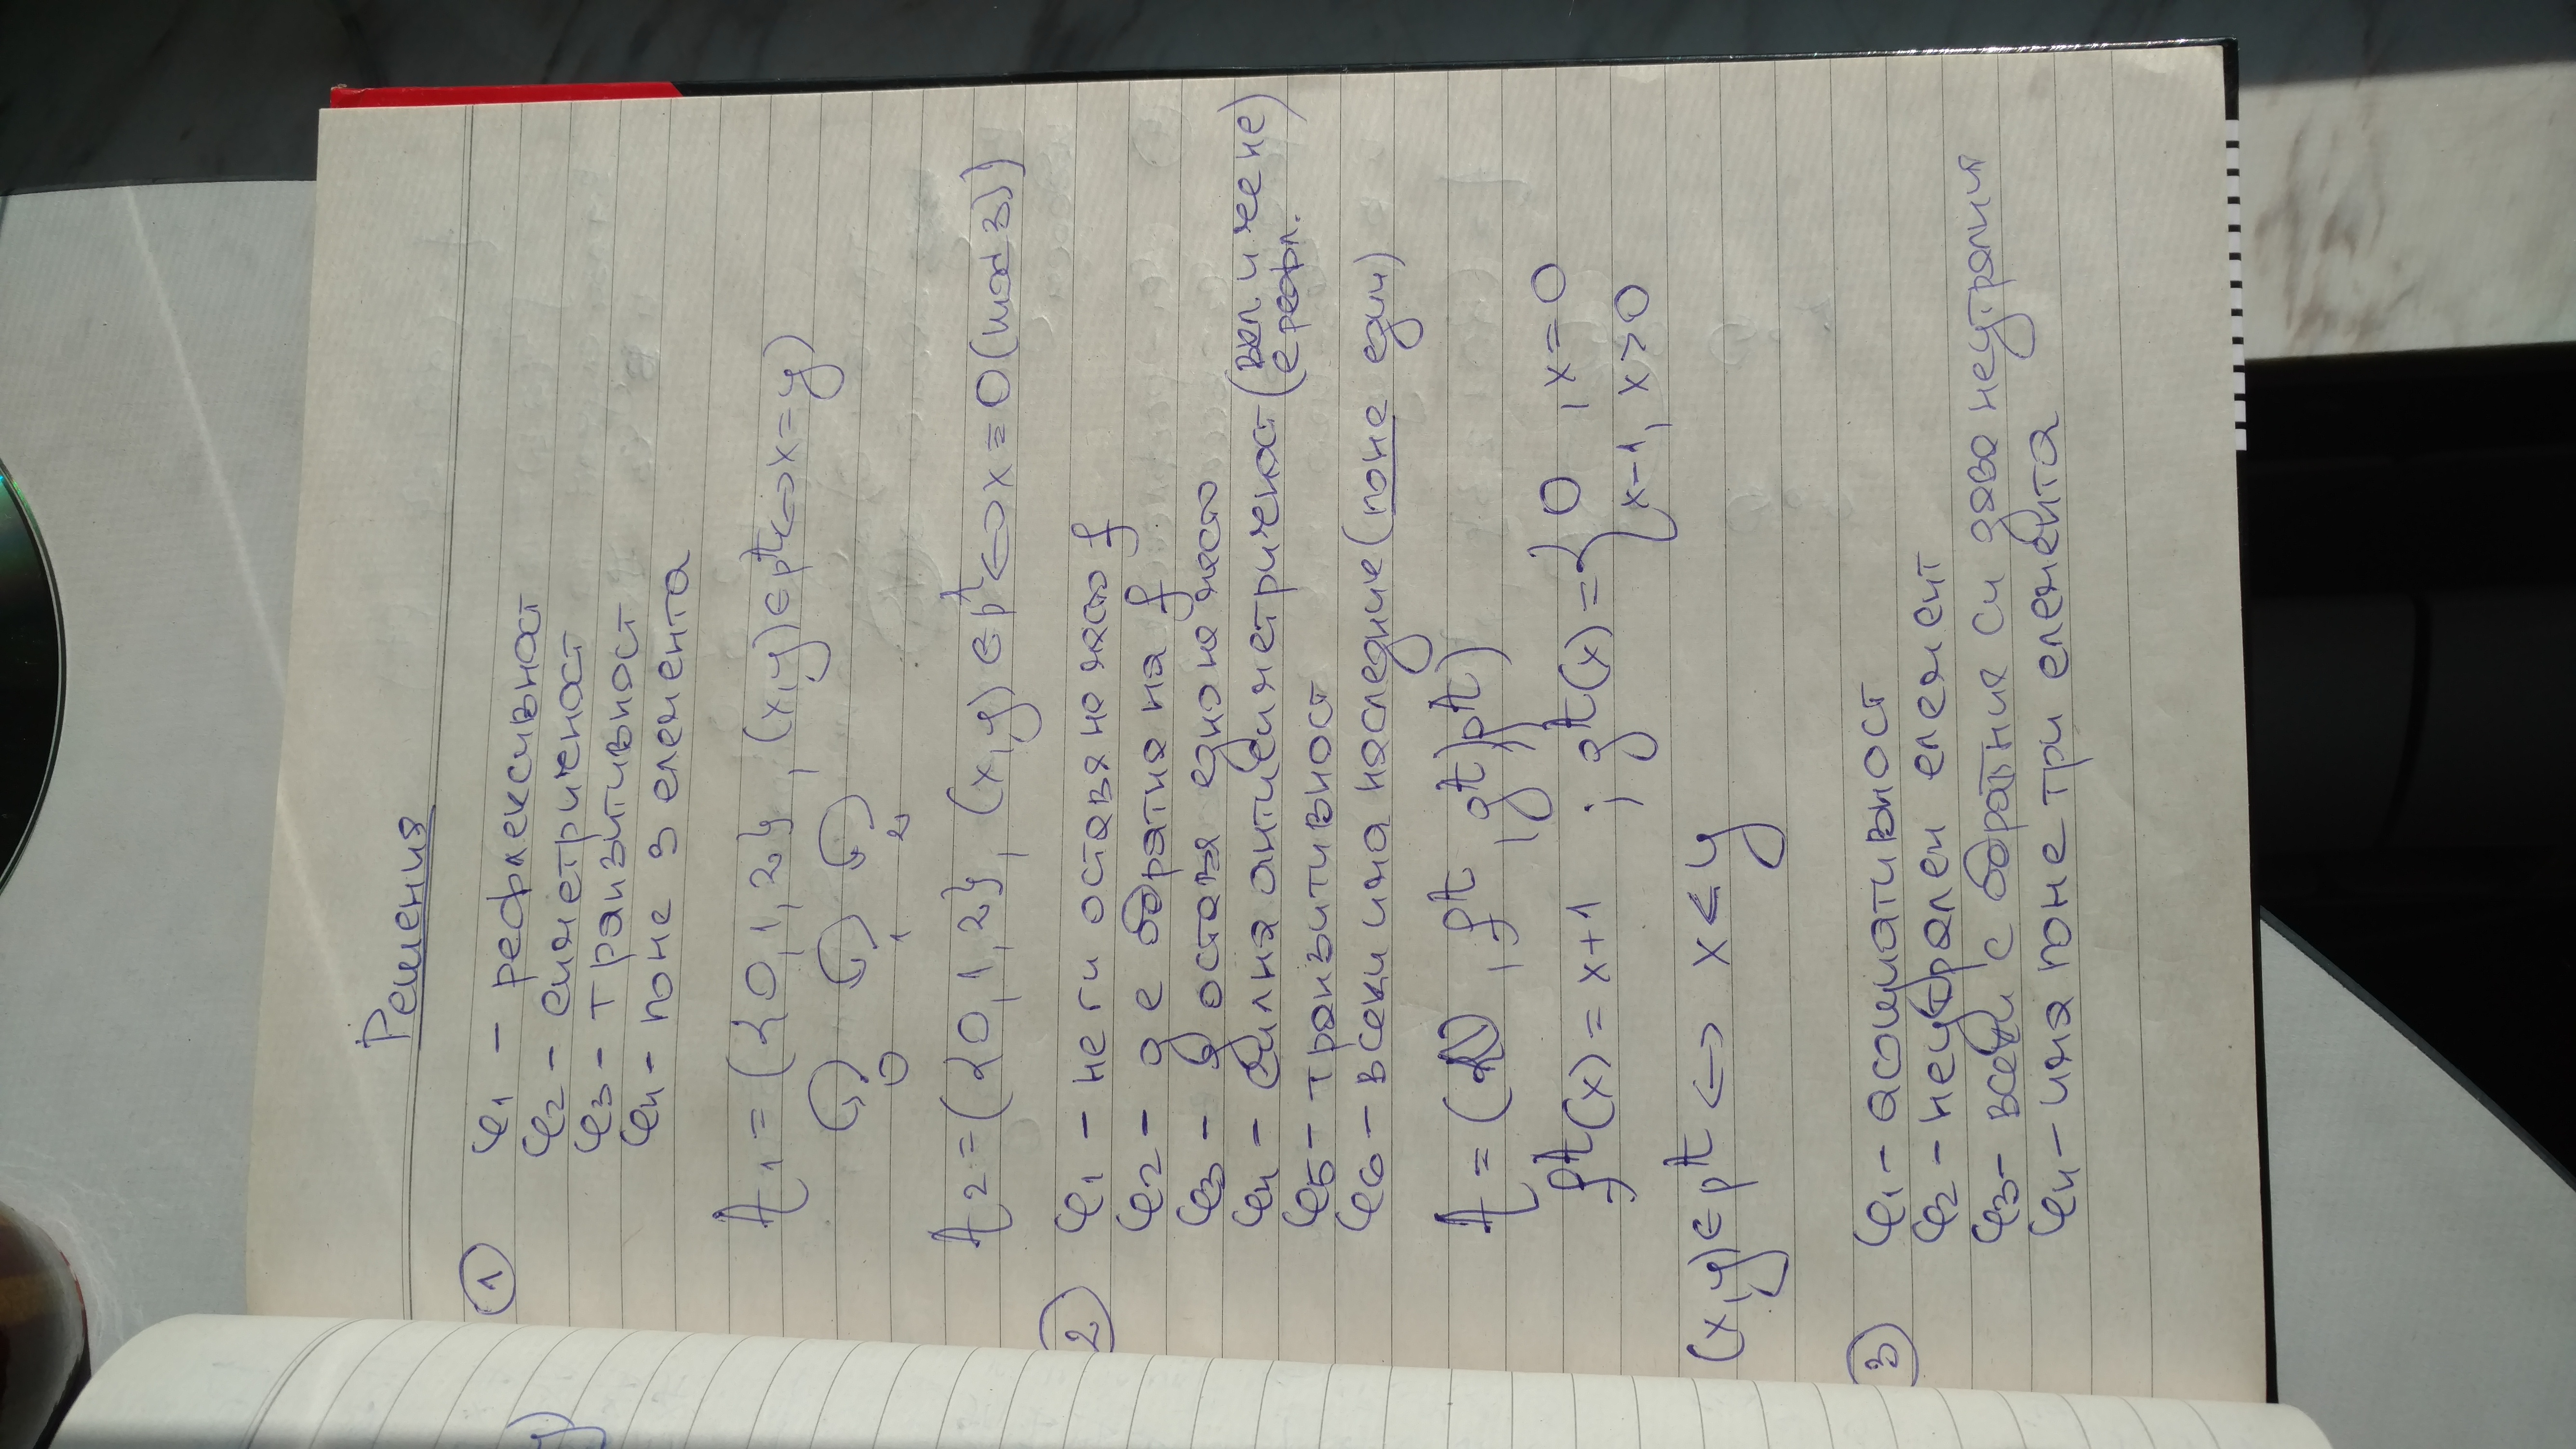 Решения
① φ1 – рефлексивност
φ2 – симетричност
φ3 – транзитивност
φ4 – поне 3 елемента
A1 = ({0,1,2}, (x,y)∈p^A ⇔ x=y)
0 1 2
A2 = ({0,1,2}, (x,y)∈p^A ⇔ x≡0(mod 3))
② φ1 – не ги оставя на място f
φ2 – g е обратна на f
φ3 – g оставя едно на място
φ4 – силна антисиметричност (вкл. и че не е рефл.)
φ5 – транзитивност
φ6 – всеки има наследник (поне един)
A = (ℕ, f^A, g^A, p^A)
f^A(x) = x+1 ; g^A(x) = { 0, x=0
x-1, x>0
(x,y)∈p^A ⇔ x<y
③ φ1 – асоциативност
φ2 – неутрален елемент
φ3 – всеки с обратния си дава неутралния
φ4 – има поне три елемента